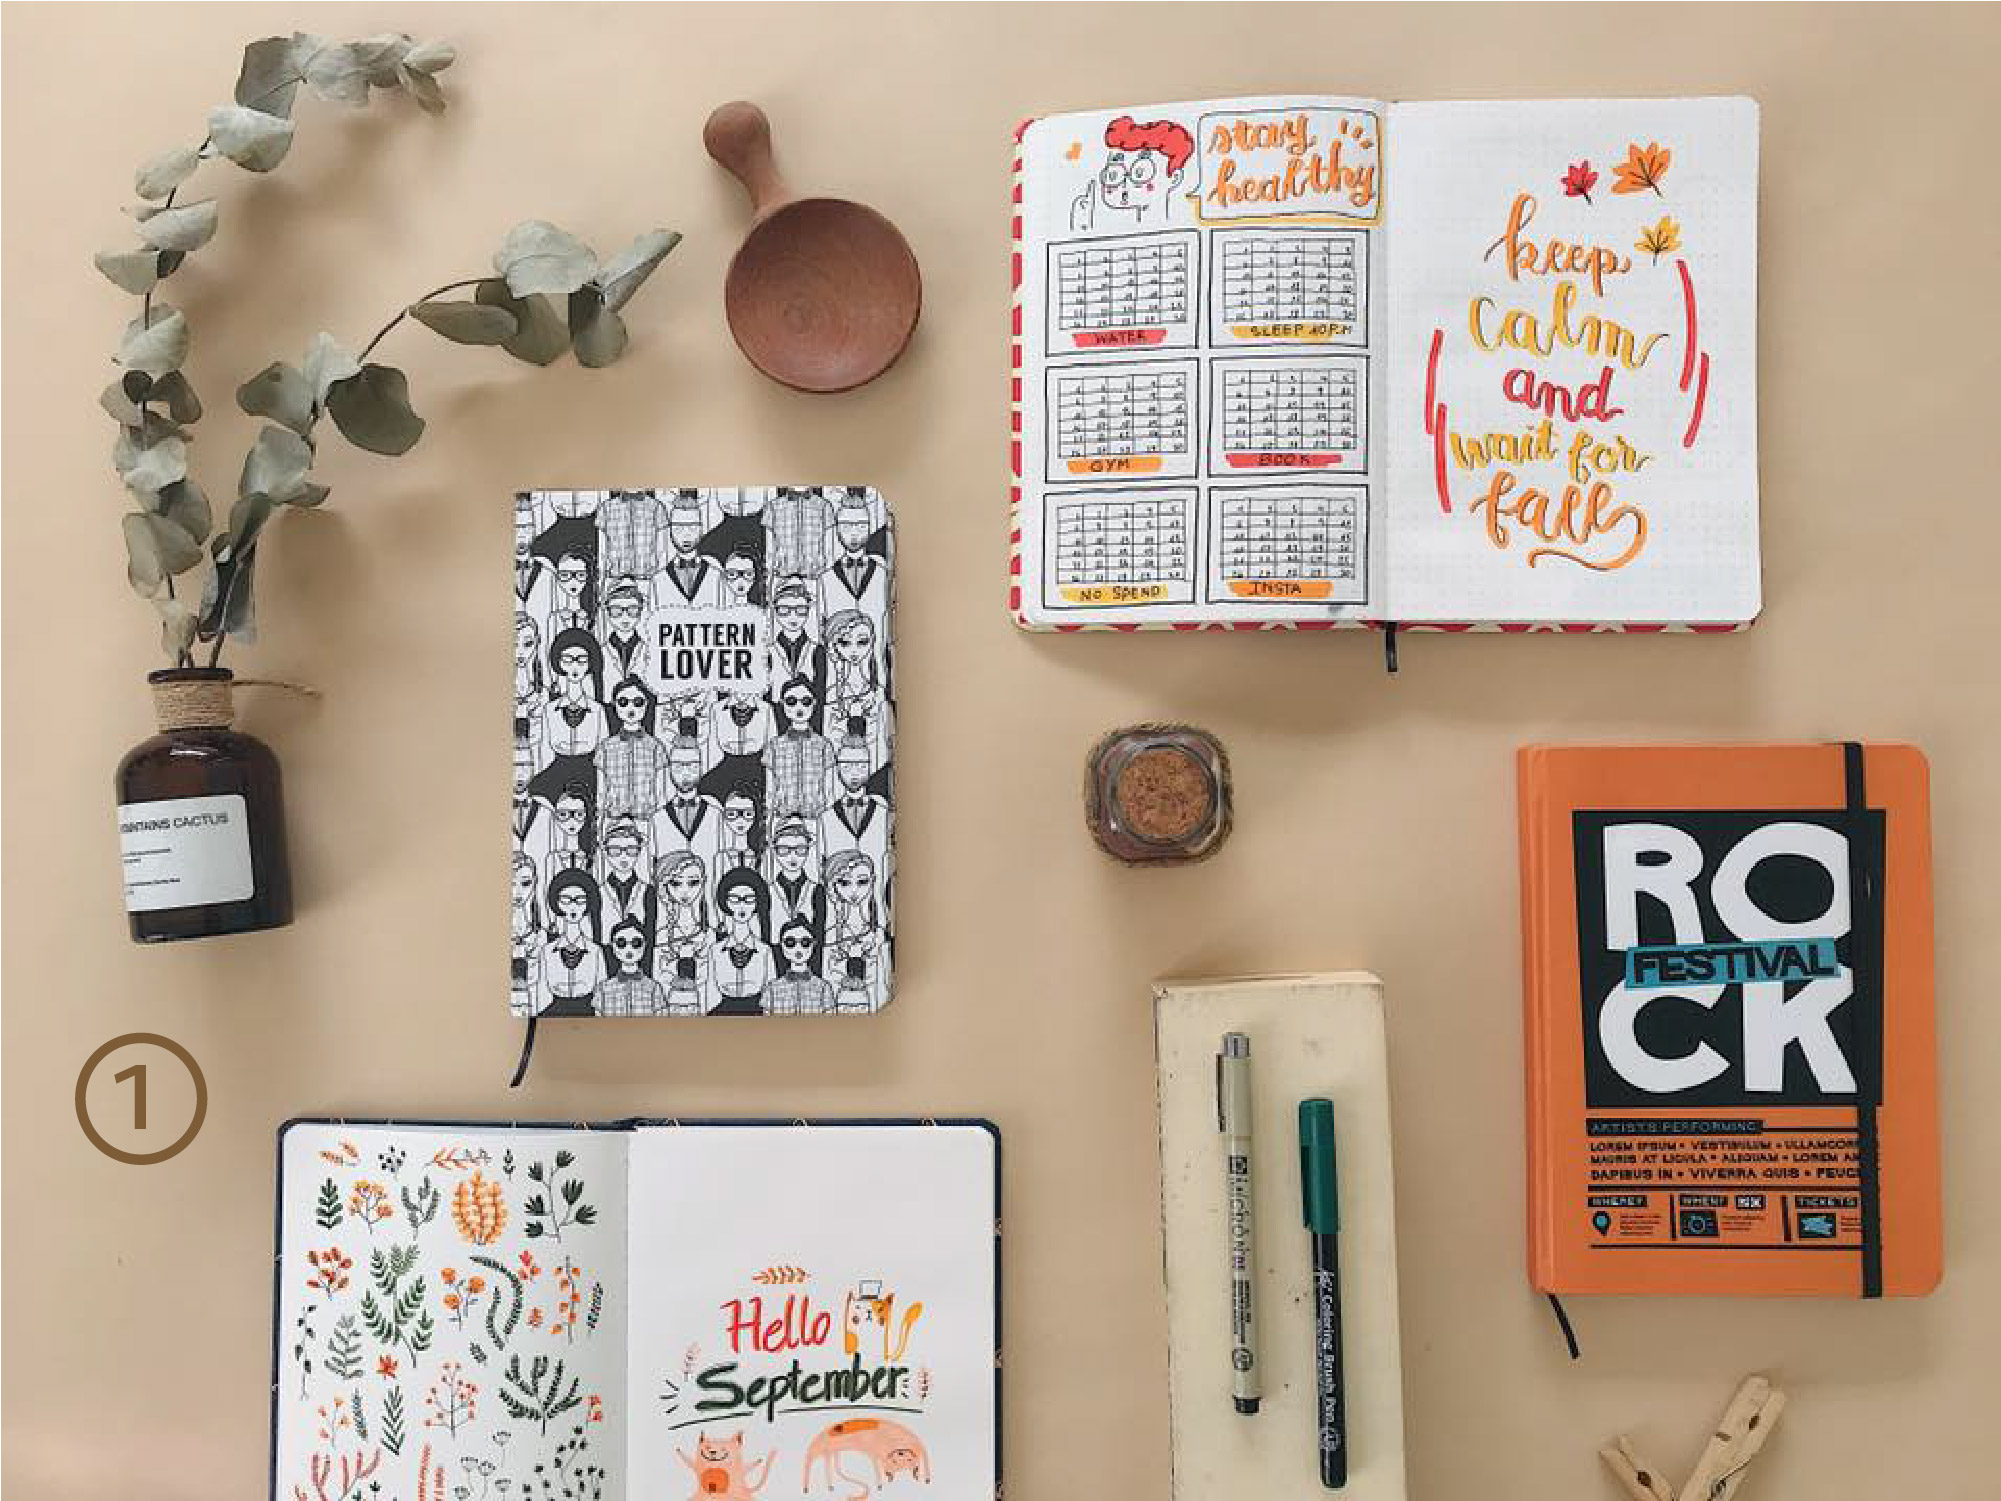 stay
healthy
WATER
SLEEP 10 P.M
GYM
BOOK
NO SPEND
INSTA
keep
calm
and
wait for
fall
PATTERN
LOVER
CACTUS
RO
FESTIVAL
CK
ARTISTS PERFORMING
LOREM IPSUM • VESTIBULUM • ULLAMCOR
MAURIS AT LIGULA • ALIQUAM • LOREM AM
DAPIBUS IN • VIVERRA QUIS • FEUG
WHERE?
WHEN?
TICKETS
1
Hello
September
Coloring Brush Pen